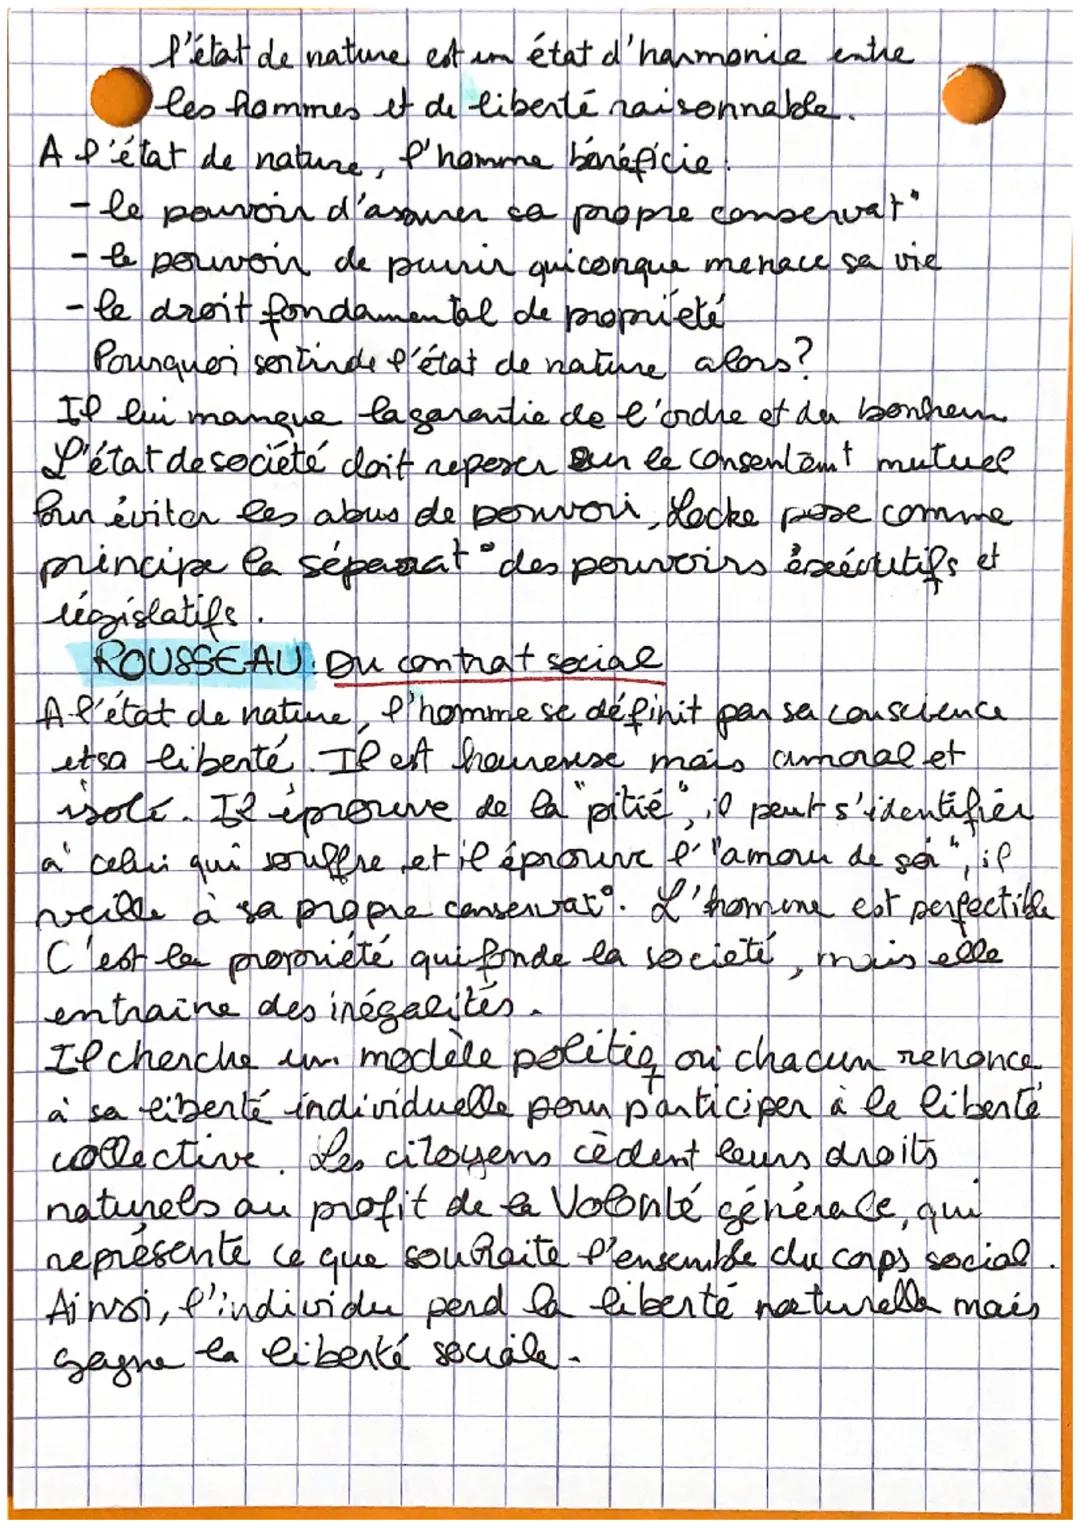 l'état de nature est un état d'harmonie entre
les hommes et de liberté raisonnable.
A l'état de nature, l'homme bénéficie :
- le pouvoir d'assurer sa propre conservat°
- le pouvoir de punir quiconque menace sa vie
- le droit fondamental de propriété
Pourquoi sortir de l'état de nature alors?
Il lui manque la garantie de l'ordre et du bonheur
L'état de société doit reposer sur le consentemt mutuel
Pour éviter les abus de pouvoir, Locke pose comme
principe la séparat° des pouvoirs éxécutifs et
législatifs.
ROUSSEAU : Du contrat social
A l'état de nature, l'homme se définit par sa conscience
et sa liberté. Il est heureuse mais amoral et
isolé. Il éprouve de la "pitié", il peut s'identifier
à celui qui souffre et il éprouve l'"amour de soi", il
veille à sa propre conservat°. L'homme est perfectible
C'est la propriété qui fonde la société, mais elle
entraine des inégalités.
Il cherche un modèle politiq où chacun renonce
à sa liberté individuelle pour participer à la liberté
collective. Les citoyens cèdent leurs droits
naturels au profit de la Volonté générale, qui
représente ce que souhaite l'ensemble du corps social.
Ainsi, l'individu perd la liberté naturelle mais
gagne la liberté sociale.